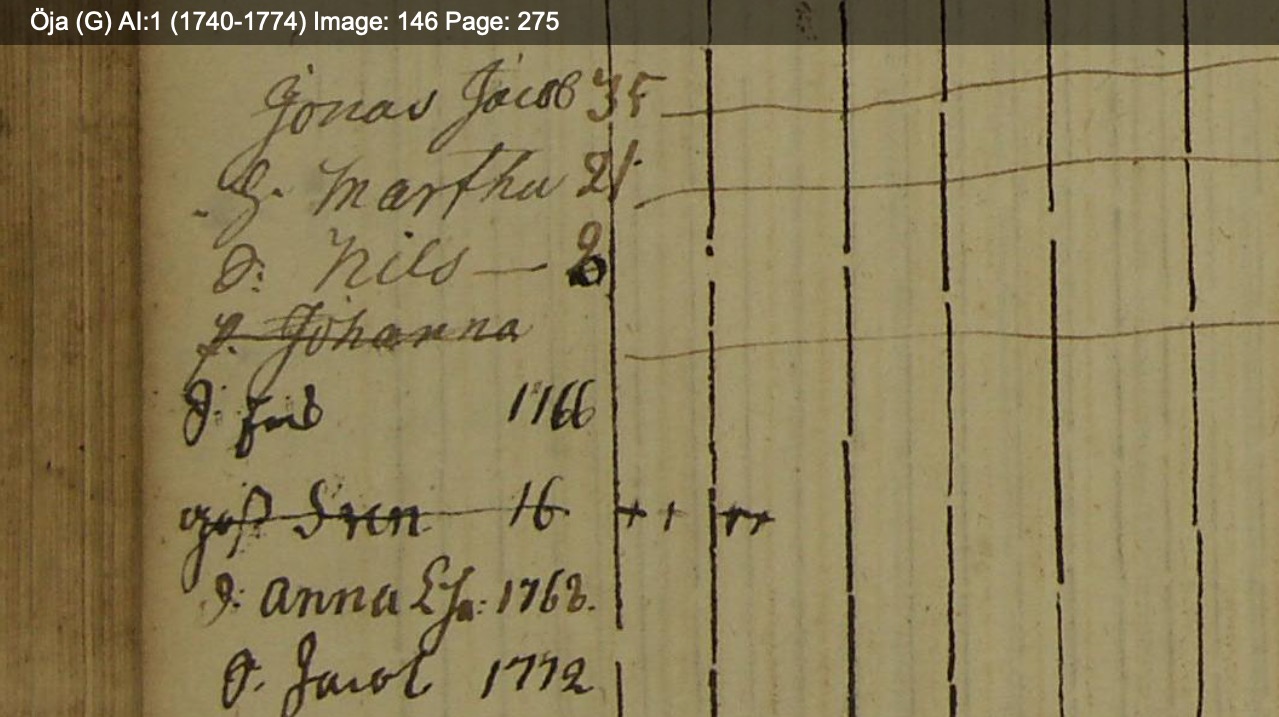 Öja (G) AI:1 (1740-1774) Image: 146 Page: 275
Jonas Jacob 35
H. Martha 21
S: Nils — 8
p. Johanna
1766
goss Sven 16
D: Anna Lisa: 1768.
S. Jacob 1772